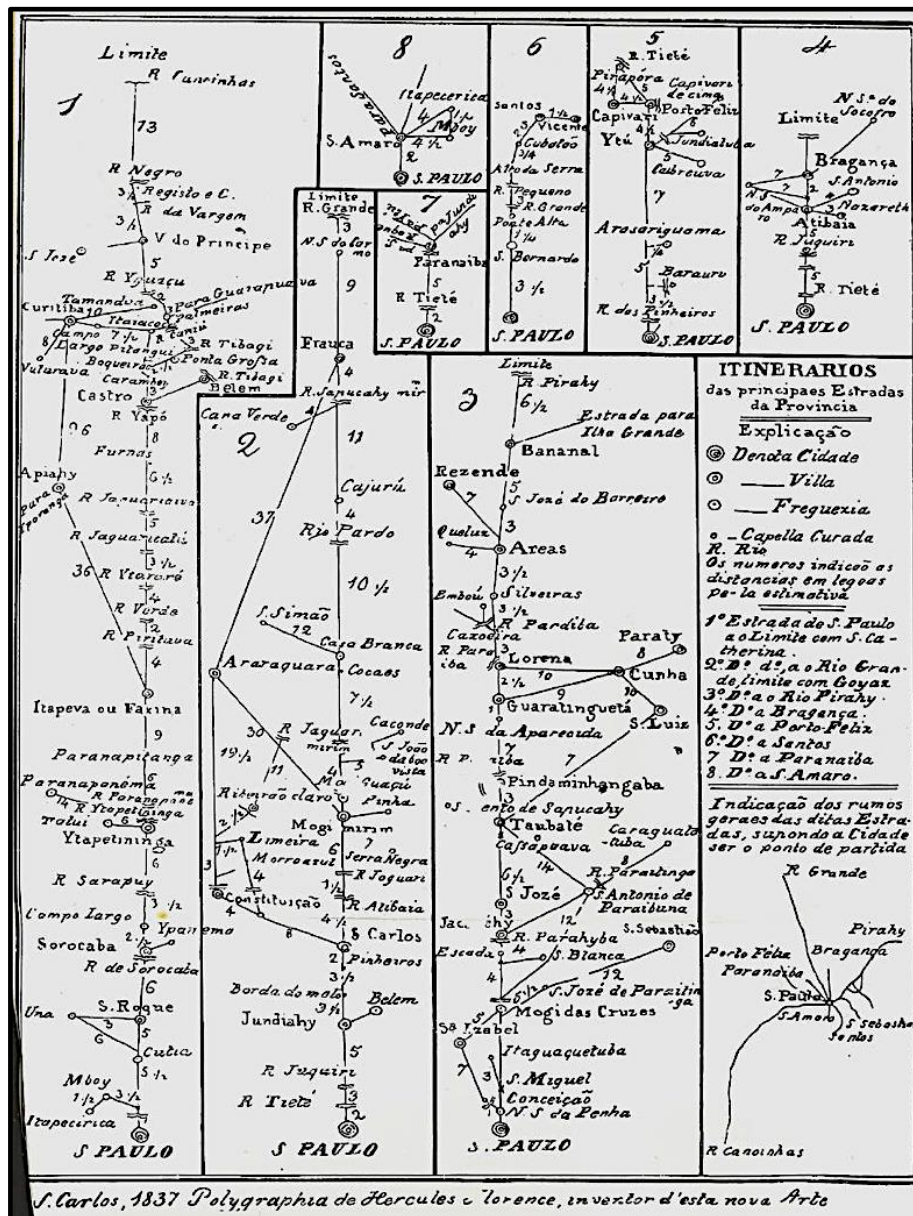 1
Limite
73
R Negro
3 ½
Registo e C.
R da Vargem
3 ½
V do Principe
S José
5
R Yguaçu
2
Tamandua
Para Guarapuava
Palmeiras
Curitiba
10
Itaiacoca
Campo
Largo
7 ½
8
Pitangui
3
R Tibagi
Ponta Grossa
Boqueirão
Vuturava
8
R. Tibagi
Belem
Castro
R Yapó
8
Furnas
6 ½
Apiahy
Para
R Jaguariaiva
5
R Jaguaricatú
3 ½
36
R Ytararé
4
R Verde
2
R Piritava
4
Itapeva ou Faxina
9
Paranapitanga
6
Paranaponema
6
14
R Ytapetininga
Tatui
6
Ytapetininga
R Sarapuy
3 ½
Campo Largo
Ypanema
2 ½
Sorocaba
R de Sorocaba
6
S. Roque
Una
3
6
5
Cutia
5 ½
Mboy
1 ½
3 ½
Itapecirica
S PAULO
2
Limite
R. Grande
3
N. S do Carmo
9
Franca
4
R. Sapucahy mir
Cana Verde
4
11
Cajurú
4
37
Rio Pardo
10 ½
S. Simão
12
Casa Branca
Araraquara
Cocaes
7 ½
30
R Jaguari
mirim
Caconde
S João
da boa
vista
19 ½
11
4
3
Guaçú
Pinha
Ribeirão claro
Mogi mirim
2 ½
Limeira
7
6
Serra Negra
1 ½
Morroazul
R Joguari
3
4
1 ½
R Atibaia
Constituição
4
4 ½
8
S Carlos
2
Pinheiros
3 ½
Borda do mato
3 ½
Belem
Jundiahy
5
R Juquiri
3
R Tieté
2
S PAULO
8
Para Santos
Itapecerica
4
1 ½
Mboy
S. Amaro
4 ½
2
S. PAULO
7
Paranaiba
5
R Tieté
2
S PAULO
6
Santos
1 ½
Vicente
2
Cubatão
¾
Alto da Serra
R Pequeno
3
R. Grande
Ponte Alta
1 ¼
S. Bernardo
3 ½
S. PAULO
5
R. Tieté
Pirapóra
5
Capivari
de cima
4 ½
4 ½
Porto Feliz
Capivari
4 ½
6
Ytú
Jundiahuba
5
Cabreuva
7
Arasariguama
¼
5
Baraurú
3 ½
R dos Pinheiros
1
S. PAULO
4
N Sª do
Socorro
Limite
Bragança
7
7
2
S. Antonio
N S
do Amparo
3
Nazareth
Atibaia
5
R Juquiri
2
5
R. Tieté
S. PAULO
3
Limite
R Pirahy
6 ½
Estrada para
Ilha Grande
Bananal
Rezende
5
7
S José do Barreiro
Queluz
3
4
Areas
3 ½
Silveiras
Emboú
3 ½
R Pardiba
Caxoeira
R Paraiba
3
Paraty
8
Lorena
10
Cunha
2 ½
9
10
1
Guaratinguetá
S. Luiz
N. S da Aparecida
7
7
Pindaminhangaba
3
Taubaté
Caraguatatuba
14
8
6 ½
R. Paraitinga
S José
S. Antonio de
Paraibuna
3
12
R. Parahyba
S. Sebastião
Escada
4
S. Blanca
4
12
5 ½
S. José de Paraitinga
5
Mogi das Cruzes
Sª Izabel
Itaquaquetuba
7
3
S. Miguel
Conceição
N. S da Penha
S. PAULO
ITINERARIOS
das principaes Estradas
da Provincia
Explicação
Denota Cidade
Villa
Freguezia
Capella Curada
R. Rio
Os numeros indicão as
distancias em legoas
pela estimativa
1º Estrada de S. Paulo
ao Limite com S. Ca-
therina.
2º. Dº dº, ao Rio Gran-
de, limite com Goyaz
3º. Dº a o Rio Pirahy.
4º. Dº a Bragança.
5. Dº a Porto-Feliz
6º. Dº a Santos
7 Dº a Paranaiba
8. Dº a S. Amaro.
Indicação dos rumos
geraes das ditas Estra-
das, supondo a Cidade
ser o ponto de partida
R Grande
Pirahy
Porto Feliz
Bragança
Paranaiba
S. Paulo
S. Amaro
S Sebastião
Santos
R Canoinhas
S. Carlos, 1837 Polygraphia de Hercules Florence, inventor d'esta nova Arte